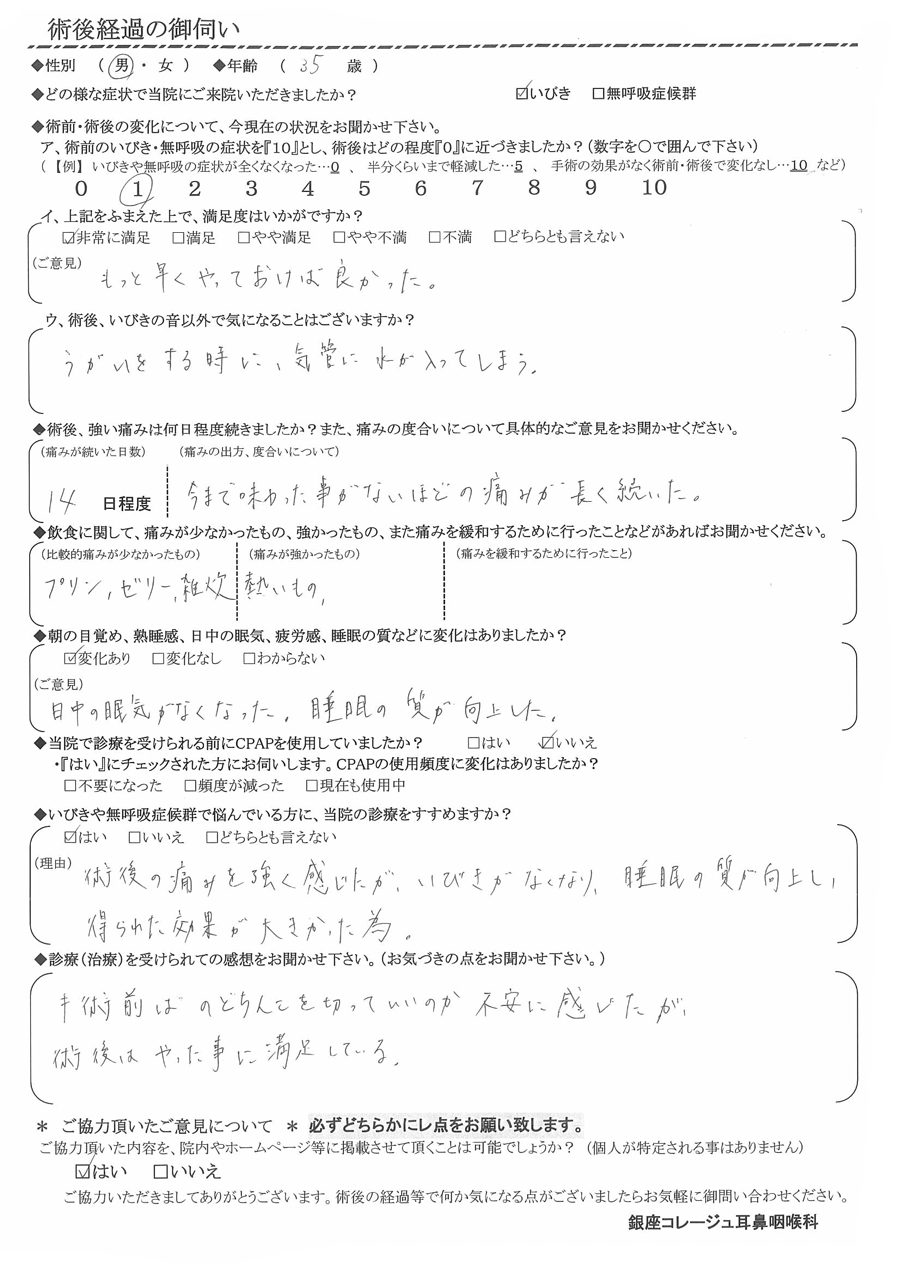 術後経過の御伺い
◆性別 (男・女) ◆年齢 (35 歳)
◆どの様な症状で当院にご来院いただきましたか? ☑いびき □無呼吸症候群
◆術前・術後の変化について、今現在の状況をお聞かせ下さい。
ア、術前のいびき・無呼吸の症状を『10』とし、術後はどの程度『0』に近づきましたか?(数字を○で囲んで下さい)
(【例】 いびきや無呼吸の症状が全くなくなった…0 、 半分くらいまで軽減した…5 、 手術の効果がなく術前・術後で変化なし…10 など)
0 1 2 3 4 5 6 7 8 9 10
イ、上記をふまえた上で、満足度はいかがですか?
☑非常に満足 □満足 □やや満足 □やや不満 □不満 □どちらとも言えない
(ご意見) もっと早くやっておけば良かった。
ウ、術後、いびきの音以外で気になることはございますか?
うがいをする時に、気管に水が入ってしまう。
◆術後、強い痛みは何日程度続きましたか?また、痛みの度合いについて具体的なご意見をお聞かせください。
(痛みが続いた日数) (痛みの出方、度合いについて)
14 日程度 今まで味わった事がないほどの痛みが長く続いた。
◆飲食に関して、痛みが少なかったもの、強かったもの、また痛みを緩和するために行ったことなどがあればお聞かせください。
(比較的痛みが少なかったもの) (痛みが強かったもの) (痛みを緩和するために行ったこと)
プリン,ゼリー,雑炊 熱いもの,
◆朝の目覚め、熟睡感、日中の眠気、疲労感、睡眠の質などに変化はありましたか?
☑変化あり □変化なし □わからない
(ご意見)
日中の眠気がなくなった。睡眠の質が向上した。
◆当院で診療を受けられる前にCPAPを使用していましたか? □はい ☑いいえ
・『はい』にチェックされた方にお伺いします。CPAPの使用頻度に変化はありましたか?
□不要になった □頻度が減った □現在も使用中
◆いびきや無呼吸症候群で悩んでいる方に、当院の診療をすすめますか?
☑はい □いいえ □どちらとも言えない
(理由) 術後の痛みを強く感じたが、いびきがなくなり、睡眠の質が向上し、
得られた効果が大きかった為。
◆診療(治療)を受けられての感想をお聞かせ下さい。(お気づきの点をお聞かせ下さい。)
手術前はのどちんこを切っていいのか不安に感じたが、
術後はやった事に満足している。
＊ ご協力頂いたご意見について ＊ 必ずどちらかにレ点をお願い致します。
ご協力頂いた内容を、院内やホームページ等に掲載させて頂くことは可能でしょうか? (個人が特定される事はありません)
☑はい □いいえ
ご協力いただきましてありがとうございます。術後の経過等で何か気になる点がございましたらお気軽に御問い合わせください。
銀座コレージュ耳鼻咽喉科